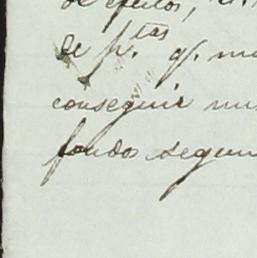 de efectos,
de p.tas q.
conseguir
fondos segun